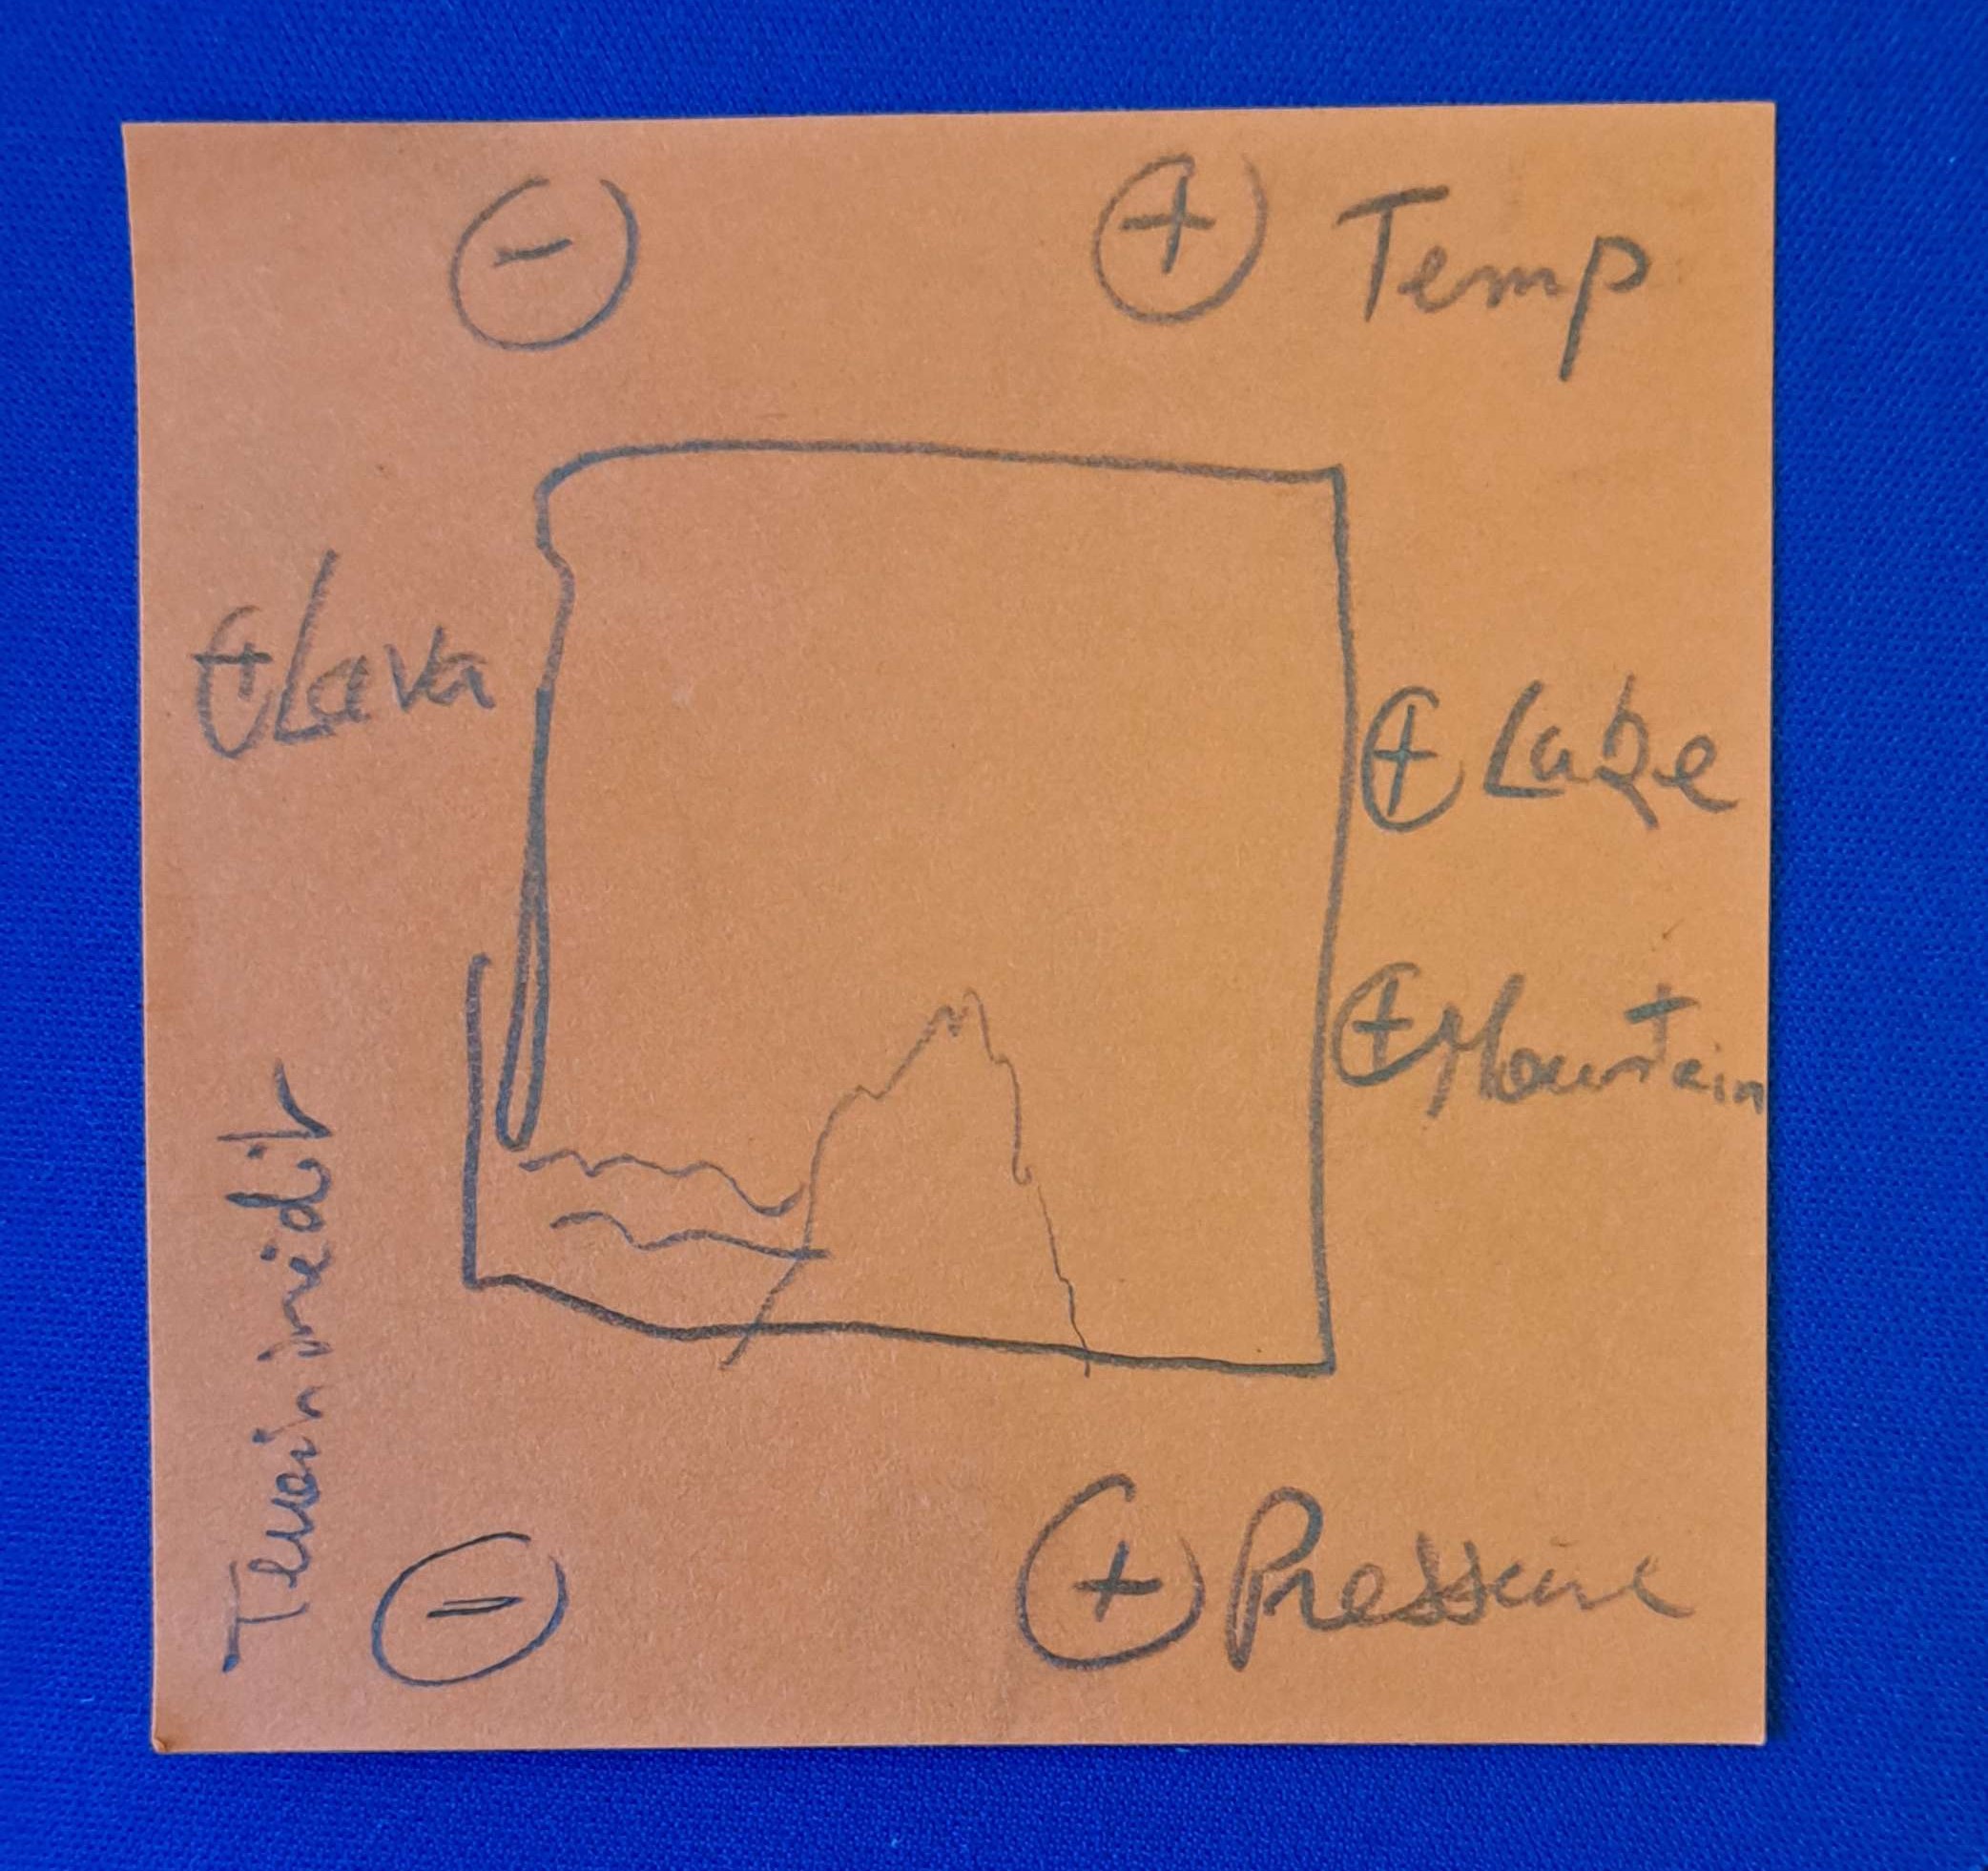 - + Temp
+ Lava
+ Lake
+ Mountain
Terrain inédit
- + Pressure